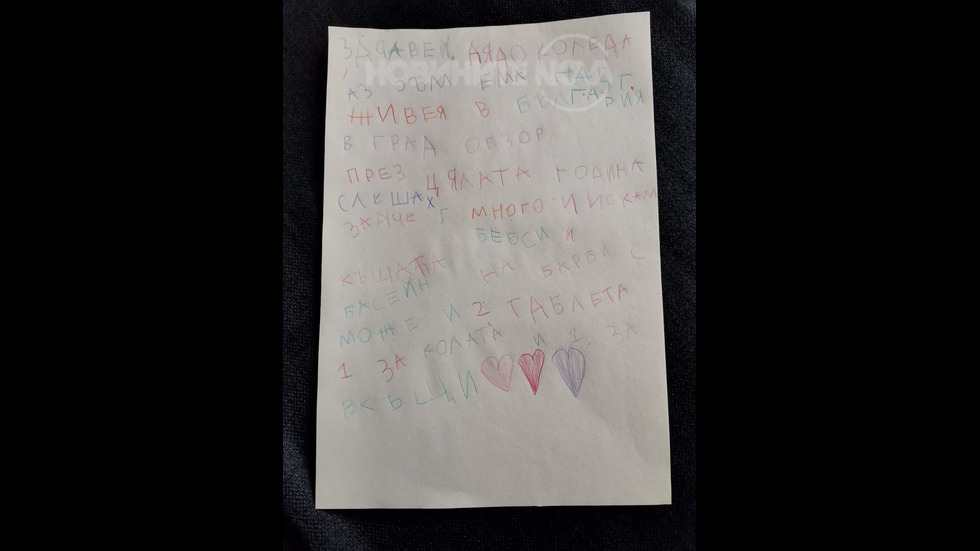 ЗДРАВЕЙ, ДЯДО КОЛЕДА
АЗ СЪМ ЕМА НА 5 Г.
ЖИВЕЯ В БЪЛГАРИЯ
В ГРАД ОБЗОР
ПРЕЗ ЦЯЛАТА ГОДИНА
СЛУШАХ МНОГО И ИСКАМ
ЗАЙЧЕ Г
БЕБСИ И
КЪЩАТА НА БАРБИ С
БАСЕЙН
МОЖЕ И 2 ТАБЛЕТА
1 ЗА КОЛАТА И 1 ЗА
ВКЪЩИ
НОВИНИТЕ NOVA